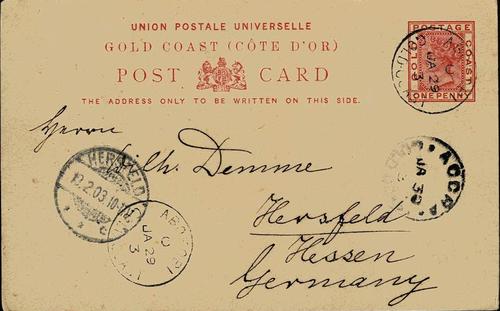 UNION POSTALE UNIVERSELLE
GOLD COAST (CÔTE D'OR)
POST CARD
THE ADDRESS ONLY TO BE WRITTEN ON THIS SIDE.
POSTAGE
GOLD COAST
ONE PENNY
JA 29
3
Herrn
Wilh. Demme
Hersfeld
Hessen
Germany
HERSFELD
2.03
JA 29
3
ACCRA
JA 30